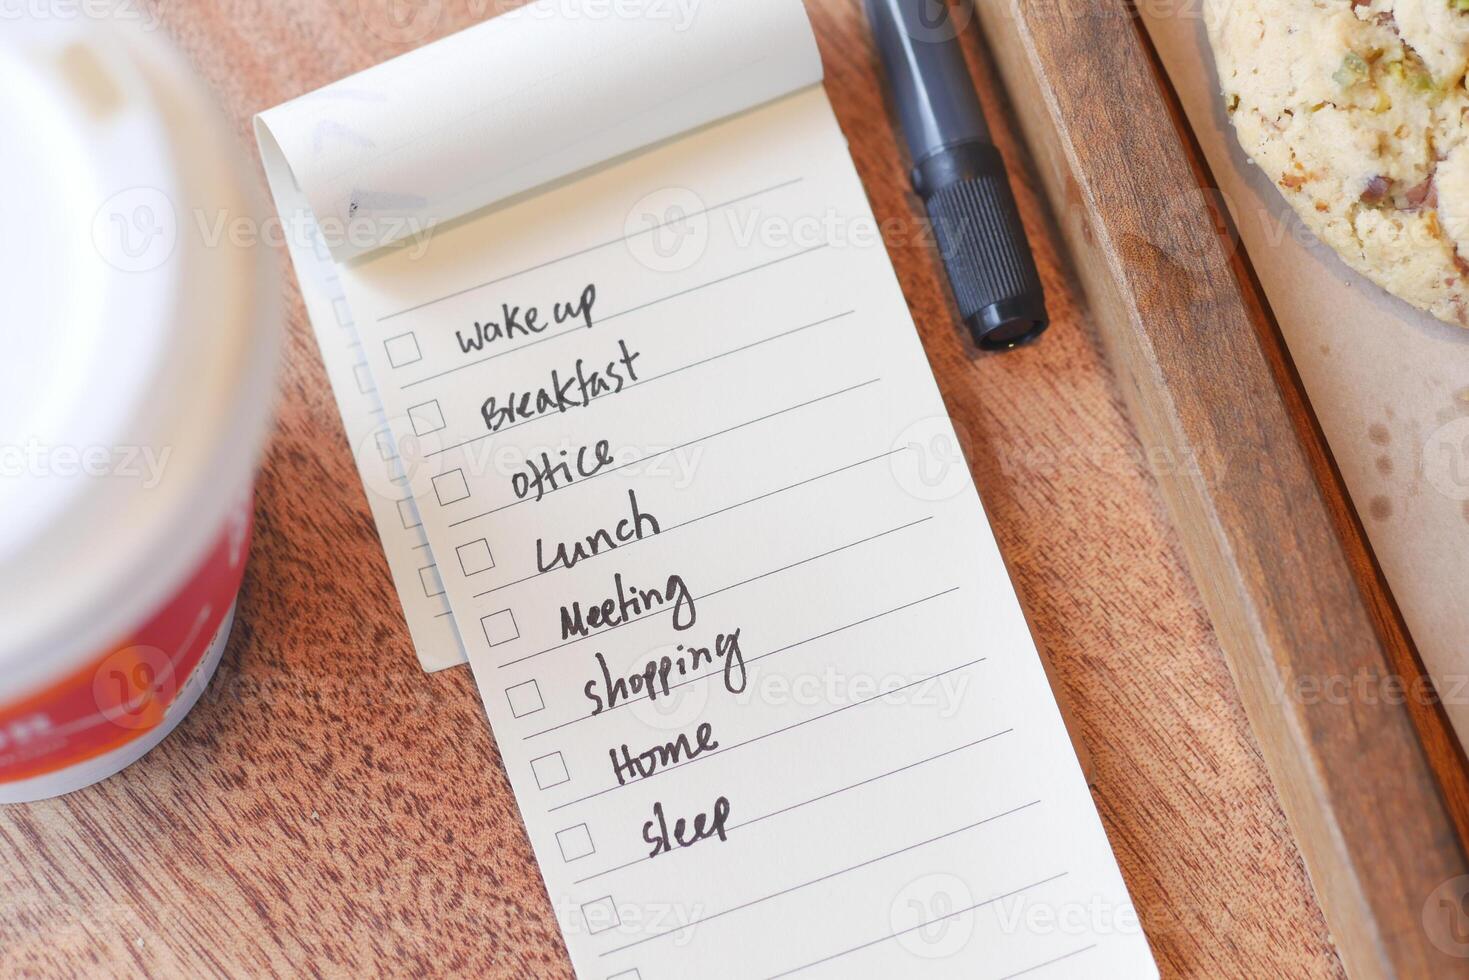 wake up
Breakfast
office
Lunch
Meeting
shopping
Home
sleep
Vecteezy